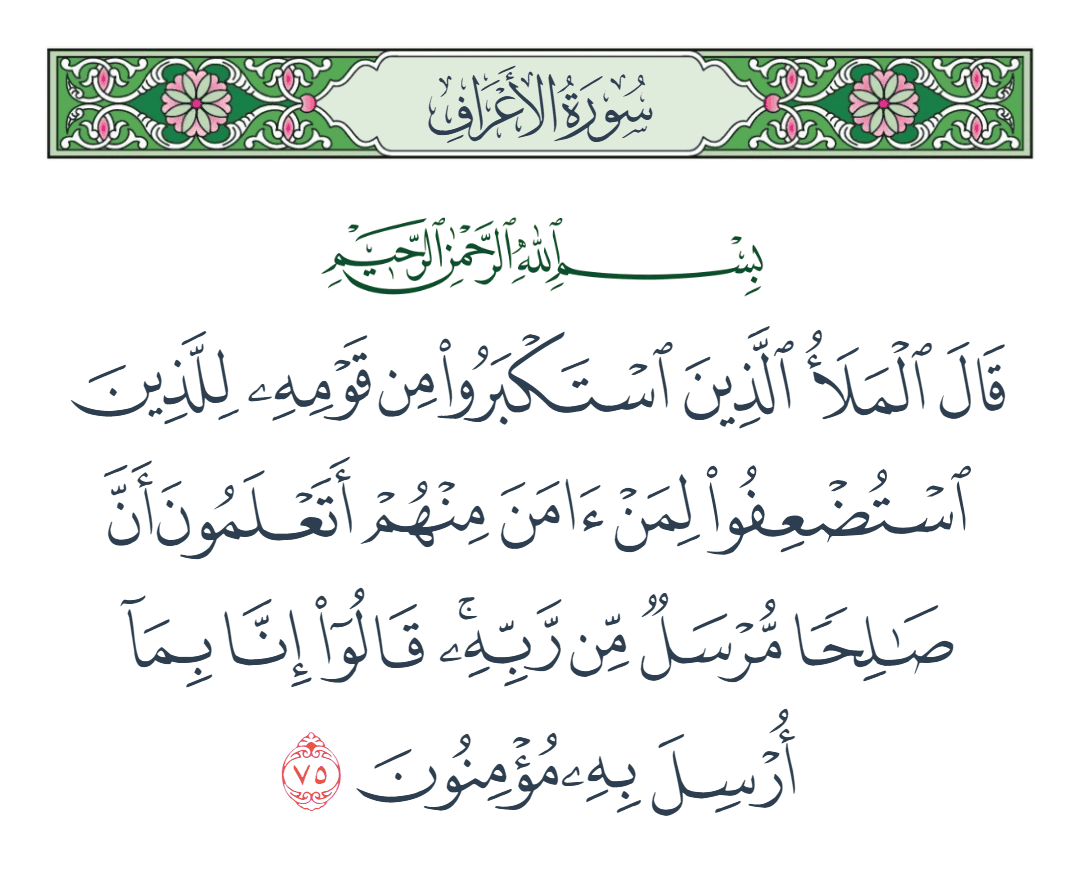 سُورَةُ الأَعْرَافِ
بِسْمِ ٱللَّهِ ٱلرَّحْمَٰنِ ٱلرَّحِيمِ
قَالَ ٱلْمَلَأُ ٱلَّذِينَ ٱسْتَكْبَرُوا۟ مِن قَوْمِهِۦ لِلَّذِينَ
ٱسْتُضْعِفُوا۟ لِمَنْ ءَامَنَ مِنْهُمْ أَتَعْلَمُونَ أَنَّ
صَـٰلِحًا مُّرْسَلٌ مِّن رَّبِّهِۦ ۚ قَالُوٓا۟ إِنَّا بِمَآ
أُرْسِلَ بِهِۦ مُؤْمِنُونَ ٧٥